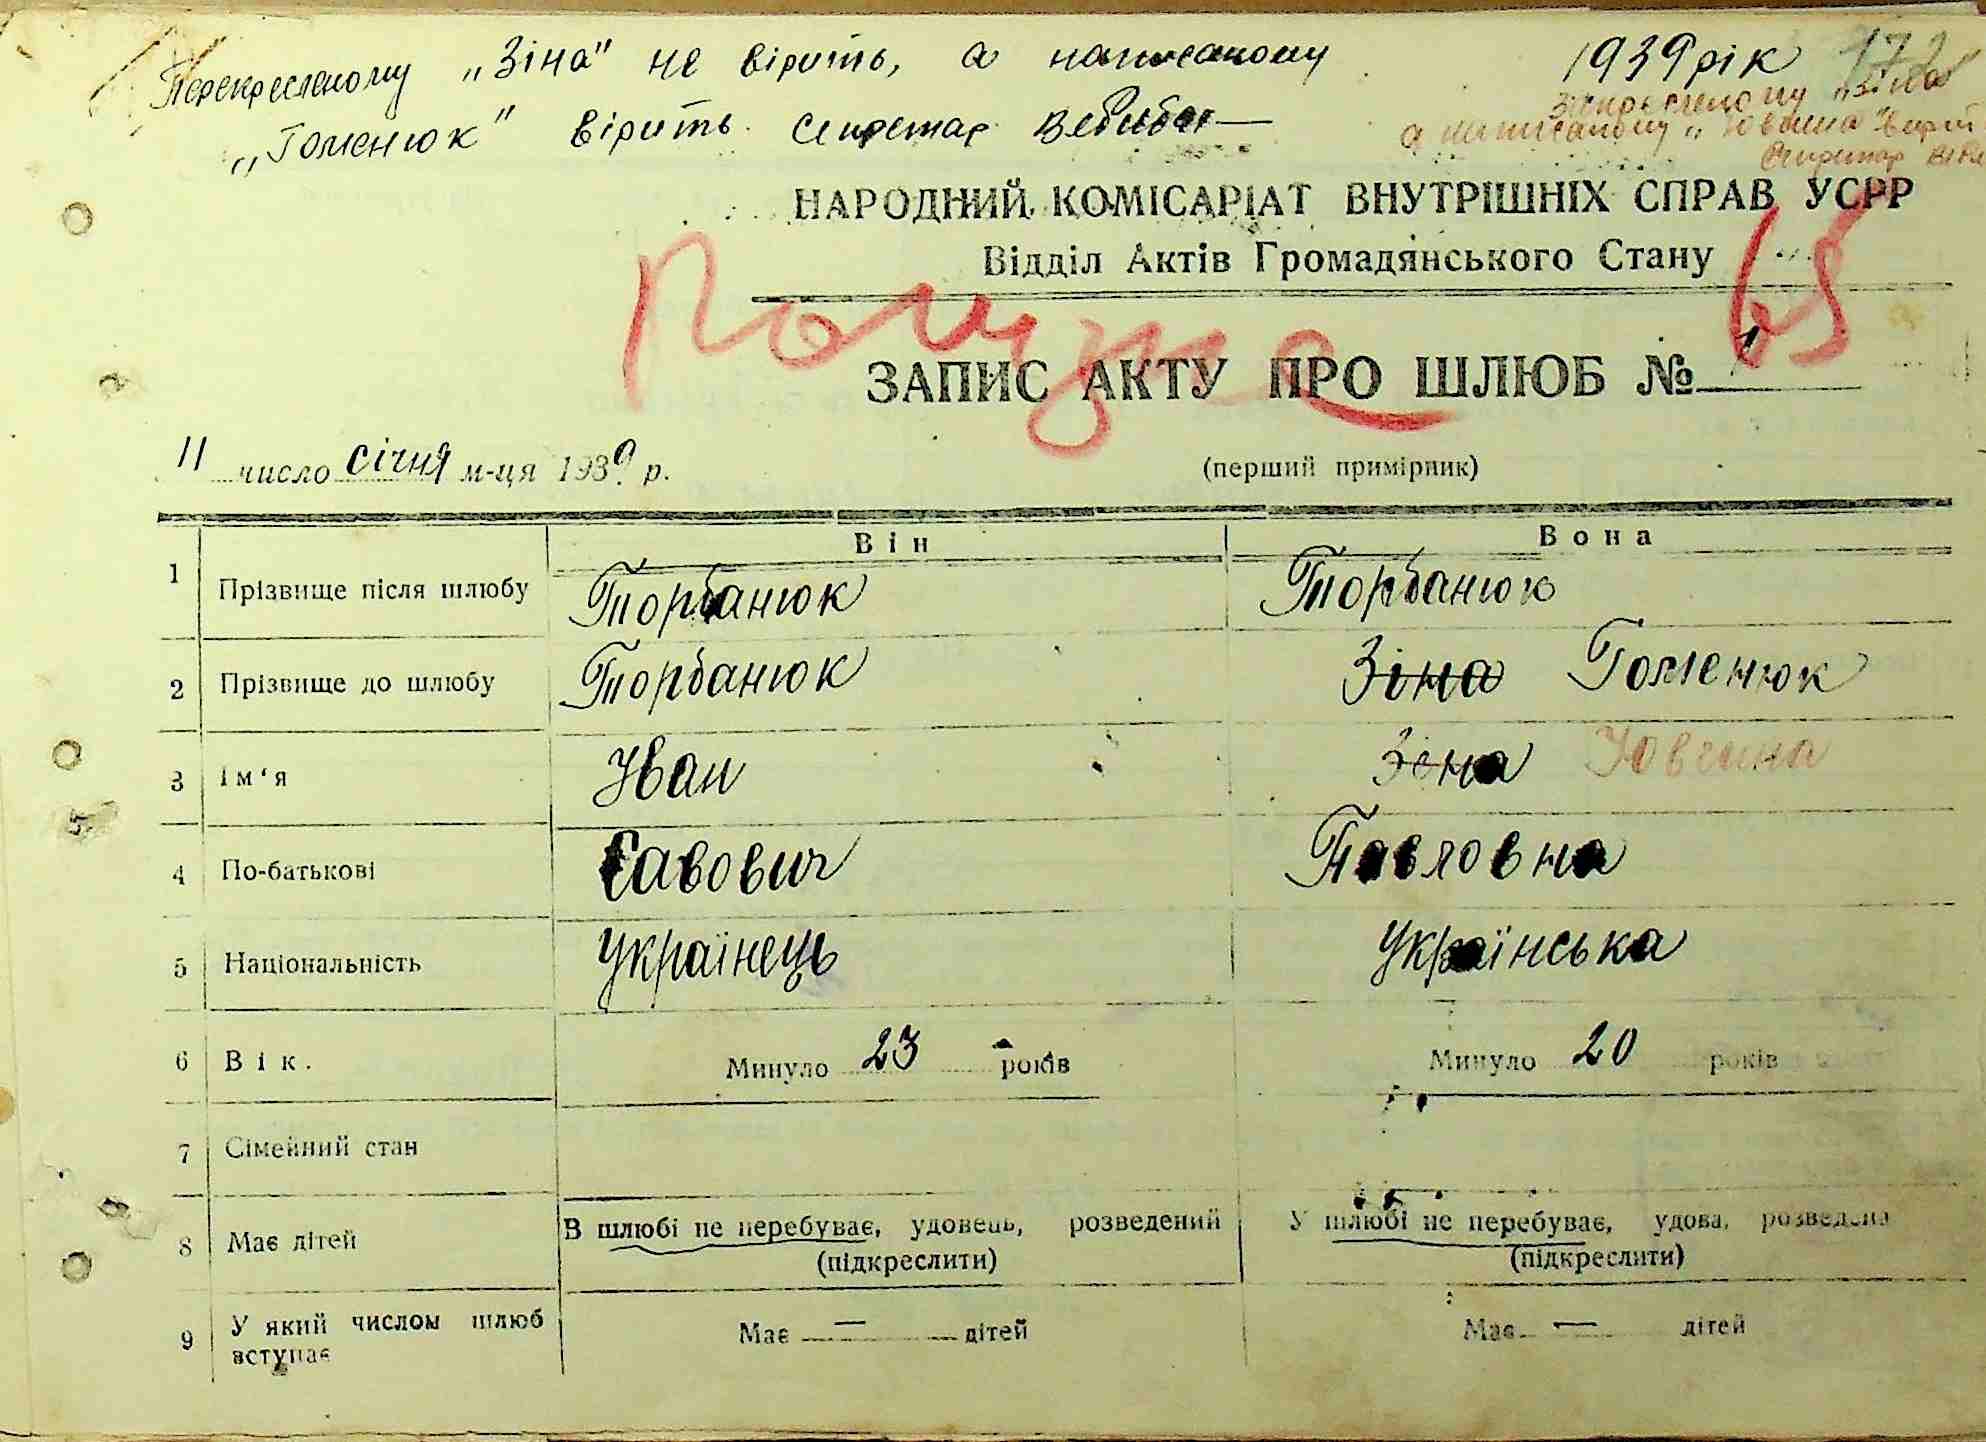 Перекресленому „Зіна" не вірить, а написаному
„Гоменюк" вірить. Секретар
1939 рік 172
Закресленому „Зіна"
а написаному „Ювгина" вірит
Секретар
НАРОДНИЙ КОМІСАРІАТ ВНУТРІШНІХ СПРАВ УСРР
Відділ Актів Громадянського Стану
65
ЗАПИС АКТУ ПРО ШЛЮБ № 1
11 число січня м-ця 1939 р.
(перший примірник)
Він Вона
1 Прізвище після шлюбу Торбанюк Торбанюк
2 Прізвище до шлюбу Торбанюк Зіна Гоменюк
3 Ім'я Іван Зіна Ювгина
4 По-батькові Савович Павловна
5 Національність Українець Українська
6 Вік. Минуло 23 років Минуло 20 років
7 Сімейний стан
8 Має дітей В шлюбі не перебуває, удовець, розведений У шлюбі не перебуває, удова, розведена
(підкреслити) (підкреслити)
9 У який числом шлюб вступає Має — дітей Має — дітей